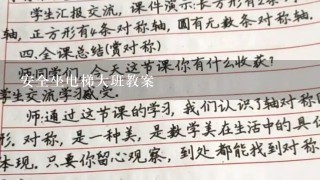 学生汇报交流，课件演示:长方形有2条
轴，正方形有4条对称轴，圆有无数条对称轴.
四.全课总结(赏对称)
今天这节课你有什么收获?
安全坐电梯大班教案
学生交流学习感受.
师:通过这节课的学习，我们认识了轴对称
形.对称，是一种美，是数学美在生活中的具
体现.只要你留心观察，到处都能找到对称